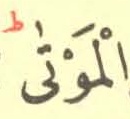 الْمَوْتٰى ؕ